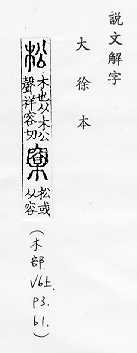 說文解字
大徐本
松 木也从木公
聲祥容切
㮤 松或
从容
(木部
V6上
P3.
b1.)